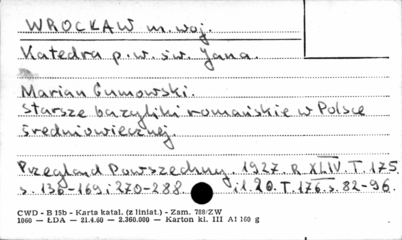 WROCŁAW m. woj.
Katedra p. w. św. Jana.
Marian Gumowski.
Starsze bazyliki romańskie w Polsce
średniowiecznej.
Przegląd Powszechny. 1927. R. XLIV. T. 175.
s. 136-169 i 270-288. i t. 20. T. 176. s. 82-96.
CWD - B 15b - Karta katal. (z liniat.) - Zam. 788/ZW
1060 — ŁDA — 21.4.60 — 2.360.000 — Karton kl. III A1 160 g